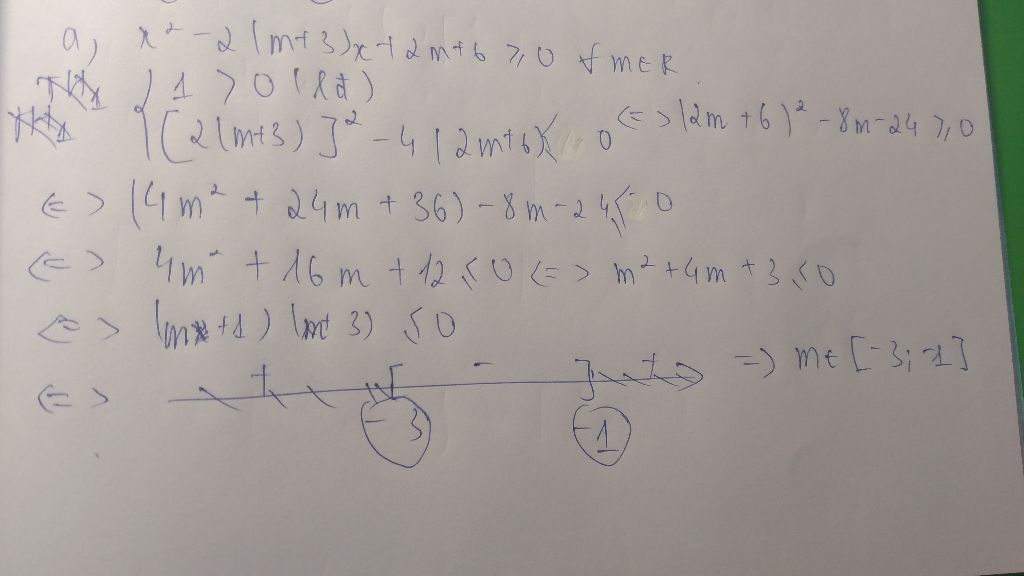 a, x² - 2(m+3)x + 2m+6 ⩾ 0 ∀ m ∈ R
{ 1 > 0 (lđ)
[2(m+3)]² - 4(2m+6) ⩽ 0 <=> (2m+6)² - 8m - 24 ⩾ 0
<=> (4m² + 24m + 36) - 8m - 24 ⩽ 0
<=> 4m² + 16m + 12 ⩽ 0 <=> m² + 4m + 3 ⩽ 0
<=> (m+1)(m+3) ⩽ 0
<=> + [ - ] + => m ∈ [-3; -1]
-3 -1